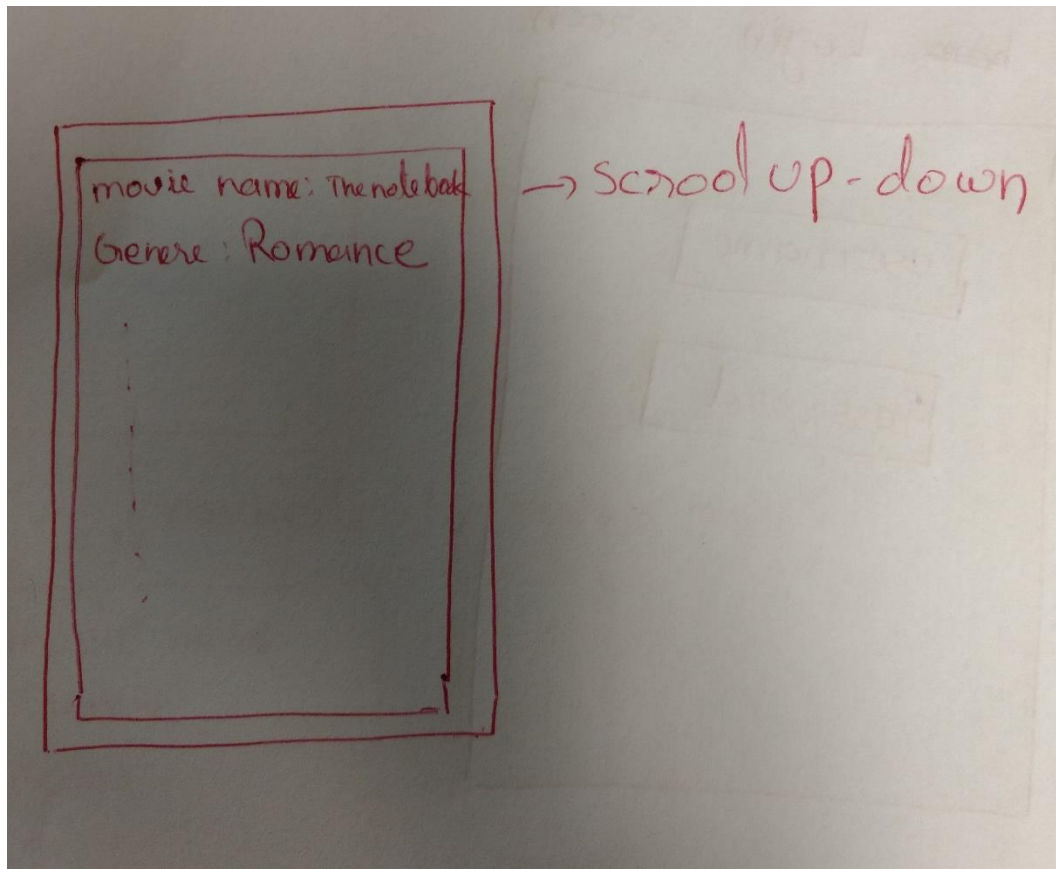 movie name: The notebook
Genere: Romance
→ scrool up-down